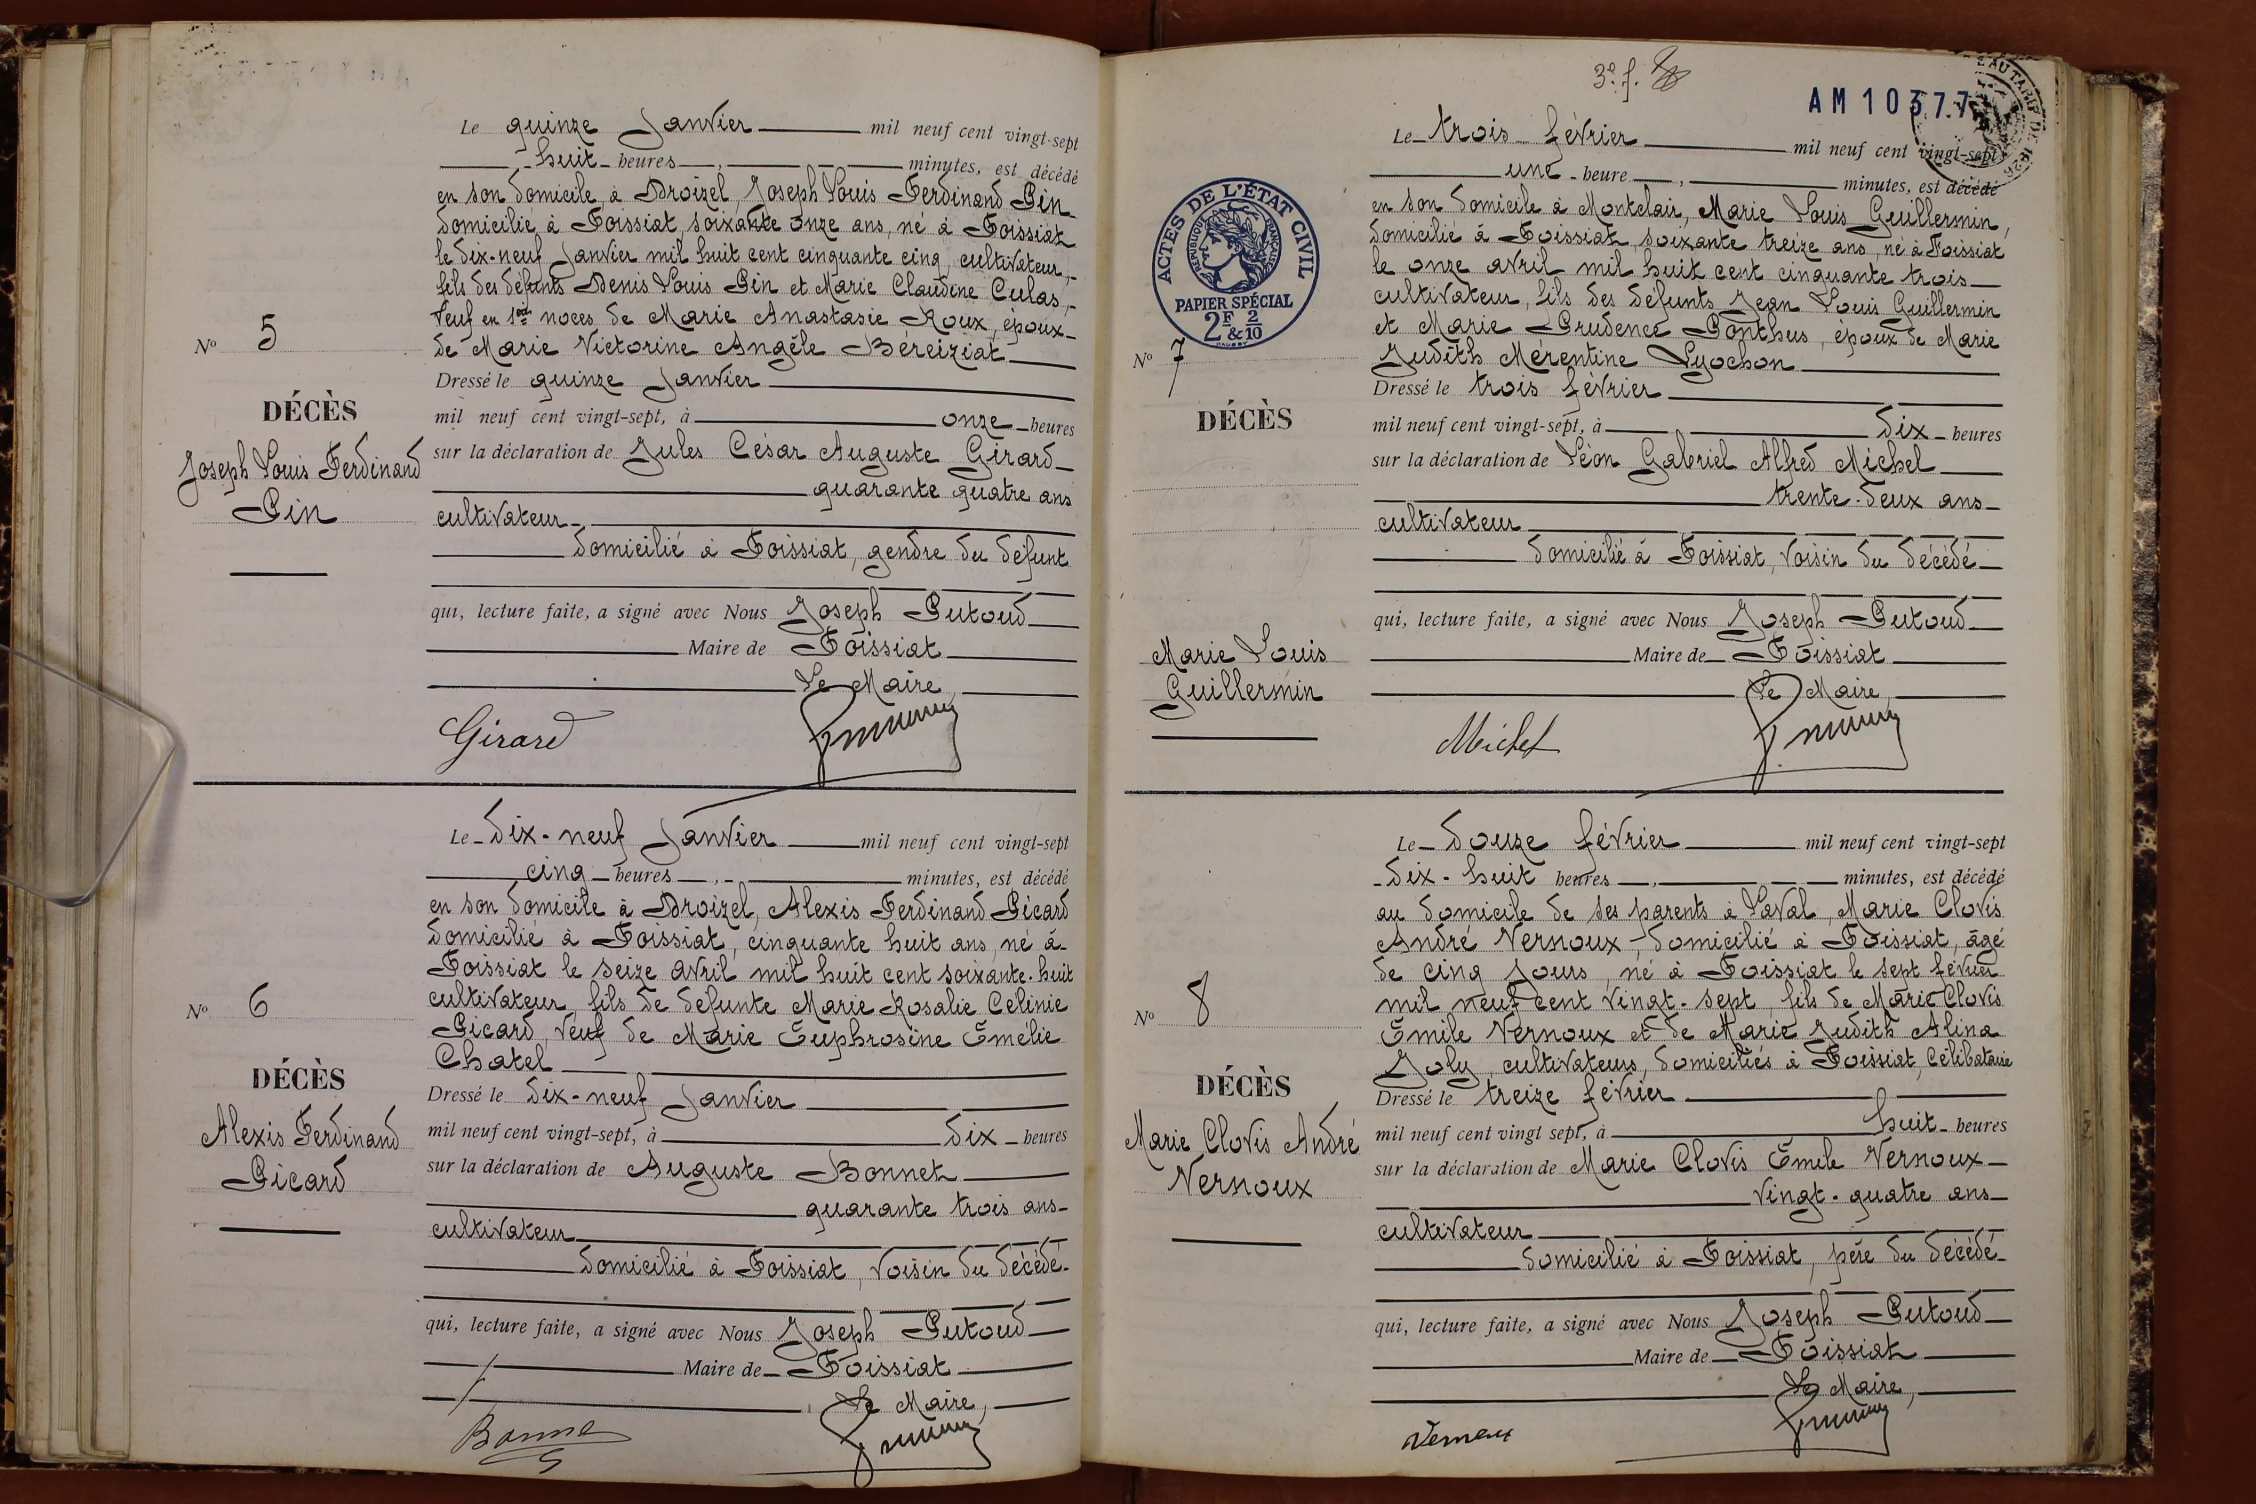 Le quinze Janvier mil neuf cent vingt-sept
huit heures, minutes, est décédé
en son domicile à Droizel, Joseph Louis Ferdinand Pin
domicilié à Foissiat, soixante onze ans, né à Foissiat
le dix-neuf Janvier mil huit cent cinquante cinq, cultivateur,
fils des défunts Denis Louis Pin et Marie Claudine Culas,
Veuf en 1ères noces de Marie Anastasie Roux, époux
de Marie Victorine Angèle Béreiziat
Nº 5
DÉCÈS
Joseph Louis Ferdinand
Pin
Dressé le quinze Janvier
mil neuf cent vingt-sept, à onze heures
sur la déclaration de Jules César Auguste Girard
quarante quatre ans
cultivateur
domicilié à Foissiat, gendre du défunt
qui, lecture faite, a signé avec Nous Joseph Putoud
Maire de Foissiat
Le Maire,
Girard
Le dix-neuf Janvier mil neuf cent vingt-sept
cinq heures, minutes, est décédé
en son domicile à Droizel, Alexis Ferdinand Picard
domicilié à Foissiat, cinquante huit ans, né à
Foissiat le seize avril mil huit cent soixante-huit
cultivateur, fils de défunte Marie Rosalie Celinie
Picard, Veuf de Marie Euphrosine Emélie
Chatel
Nº 6
DÉCÈS
Alexis Ferdinand
Picard
Dressé le dix-neuf Janvier
mil neuf cent vingt-sept, à dix heures
sur la déclaration de Auguste Bonnet
quarante trois ans
cultivateur
domicilié à Foissiat, voisin du décédé
qui, lecture faite, a signé avec Nous Joseph Putoud
Maire de Foissiat
Le Maire,
3e f.
AM 10377
ACTES DE L'ÉTAT CIVIL
RÉPUBLIQUE FRANÇAISE
PAPIER SPÉCIAL
2F & 2/10
Le trois février mil neuf cent vingt-sept
une heure, minutes, est décédé
en son domicile à Montclair, Marie Louis Guillermin,
domicilié à Foissiat, soixante treize ans, né à Foissiat
le onze avril mil huit cent cinquante trois
cultivateur, fils des défunts Jean Louis Guillermin
et Marie Prudence Ponthus, époux de Marie
Judith Mérentine Lyochon
Nº 7
DÉCÈS
Marie Louis
Guillermin
Dressé le trois février
mil neuf cent vingt-sept, à dix heures
sur la déclaration de Léon Gabriel Alfred Michel
trente-deux ans
cultivateur
domicilié à Foissiat, Voisin du décédé
qui, lecture faite, a signé avec Nous Joseph Putoud
Maire de Foissiat
Le Maire
Michel
Le douze février mil neuf cent vingt-sept
dix-huit heures, minutes, est décédé
au domicile de ses parents à Laval, Marie Clovis
André Vernoux, domicilié à Foissiat, âgé
de cinq jours, né à Foissiat le sept février
mil neuf cent vingt-sept, fils de Marie Clovis
Emile Vernoux et de Marie Judith Alina
Joly, cultivateurs, domiciliés à Foissiat, Célibataire
Nº 8
DÉCÈS
Marie Clovis André
Vernoux
Dressé le treize février
mil neuf cent vingt sept, à huit heures
sur la déclaration de Marie Clovis Emile Vernoux
vingt-quatre ans
cultivateur
domicilié à Foissiat, père du décédé
qui, lecture faite, a signé avec Nous Joseph Putoud
Maire de Foissiat
Le Maire,